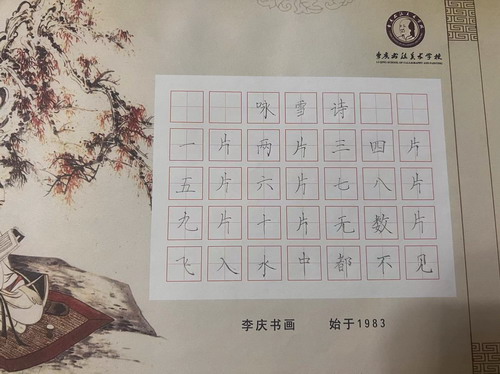 李庆书法美术学校
LI QING SCHOOL OF CALLIGRAPHY AND PAINTING
咏雪诗
一片两片三四片
五片六片七八片
九片十片无数片
飞入水中都不见
李庆书画 始于1983